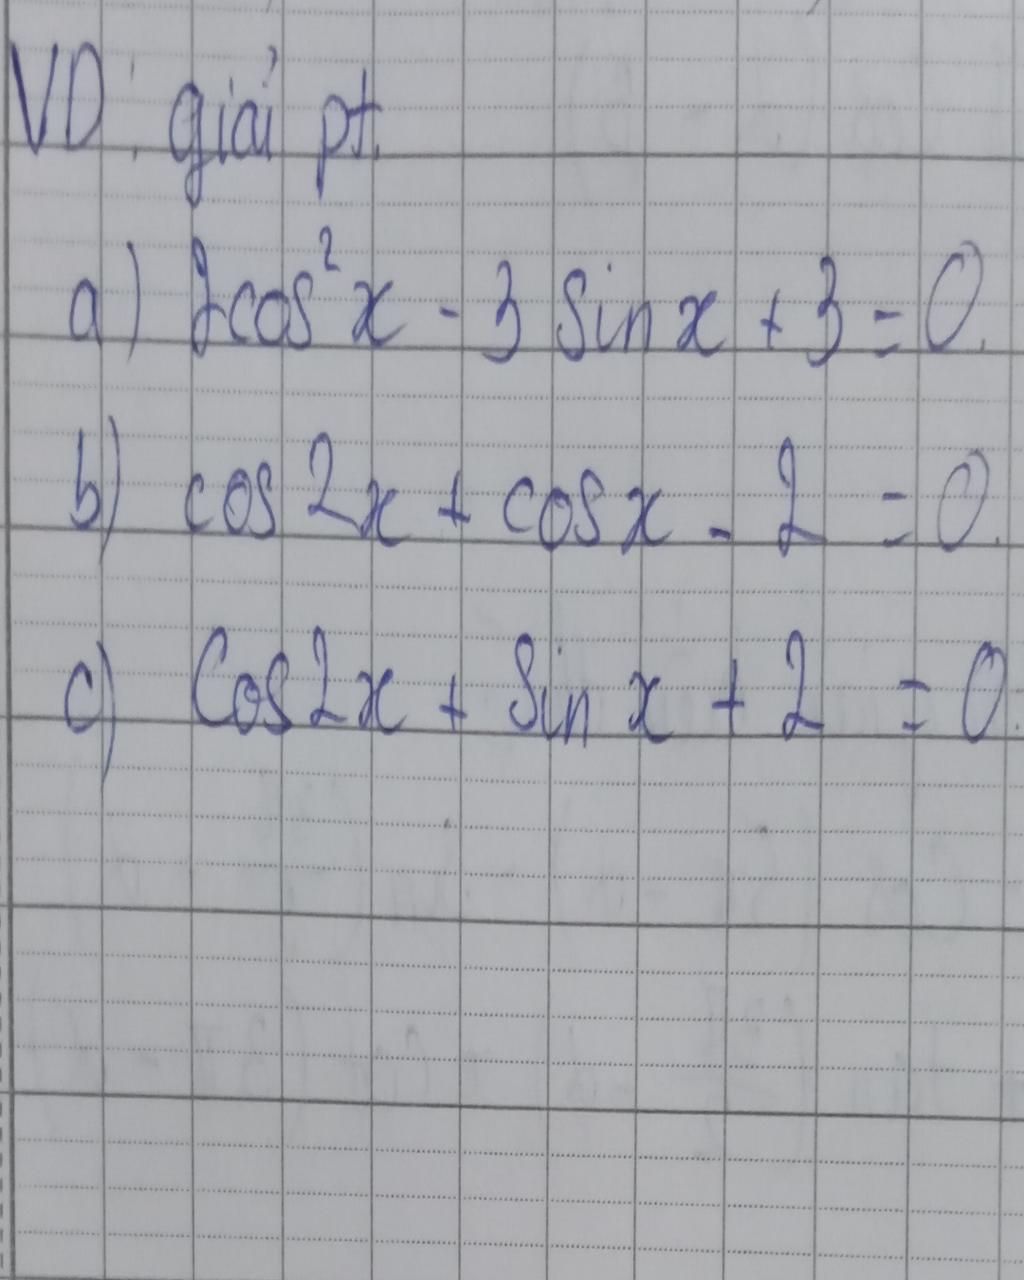 VD: giải pt.
a) 2cos²x - 3 sin x + 3 = 0.
b) cos 2x + cos x - 2 = 0.
c) Cos2x + Sin x + 2 = 0.